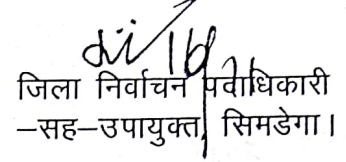 जिला निर्वाचन पदाधिकारी
–सह–उपायुक्त, सिमडेगा।